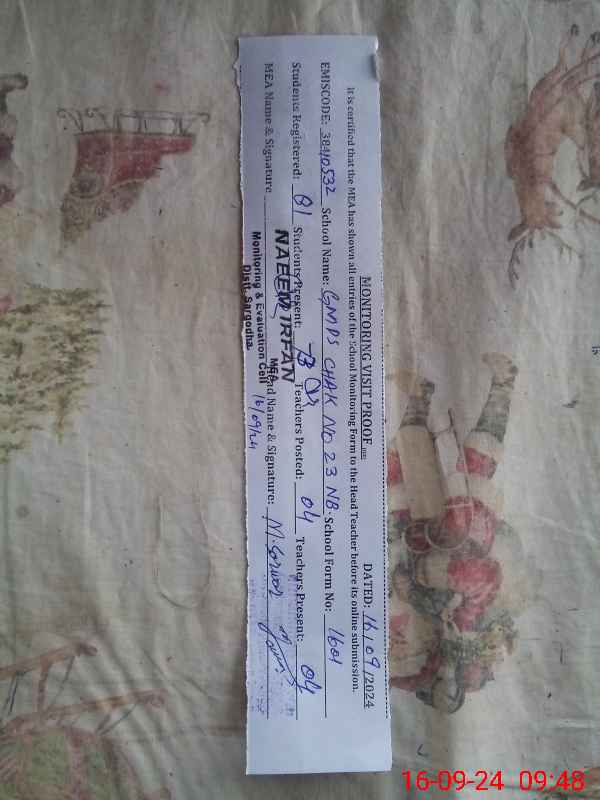 MONITORING VISIT PROOF DATED: 16/09/2024
It is certified that the MEA has shown all entries of the School Monitoring Form to the Head Teacher before its online submission.
EMISCODE: 38410532 School Name: GMPS CHAK NO 23 NB. School Form No: 1601
Students Registered: 81 Students Present: 73 Teachers Posted: 04 Teachers Present: 04
MEA Name & Signature Head Name & Signature: M. Sarwar
NAEEM IRFAN
MEA
Monitoring & Evaluation Cell
Distt. Sargodha
16/09/24
16-09-24 09:48